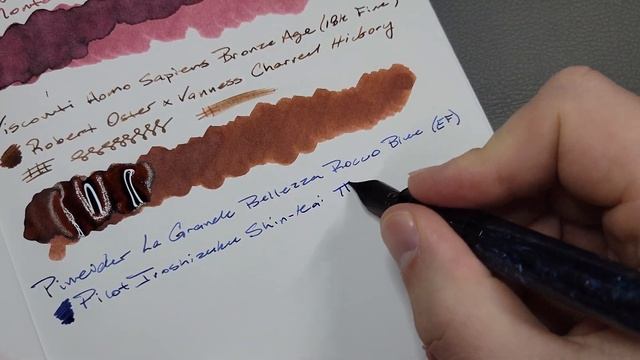 Visconti Homo Sapiens Bronze Age (18k Fine)
Robert Oster x Vanness Charred Hickory
Pineider La Grande Bellezza Rocco Blue (EF)
Pilot Iroshizuku Shin-kai